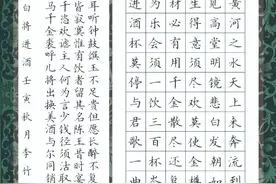 黄河之水天上来奔流到
见高堂明镜悲白发朝如
生得意须尽欢莫使金樽
材必有用千金散尽还复
为乐会须一饮三百杯岑
进酒杯莫停与君歌一曲
耳听钟鼓馔玉不足贵但愿长醉不复
皆寂寞惟有饮者留其名陈王昔时宴
千恣欢谑主人何为言少钱径须沽取
马千金裘呼儿将出换美酒与尔同销
白将进酒壬寅秋月李竹